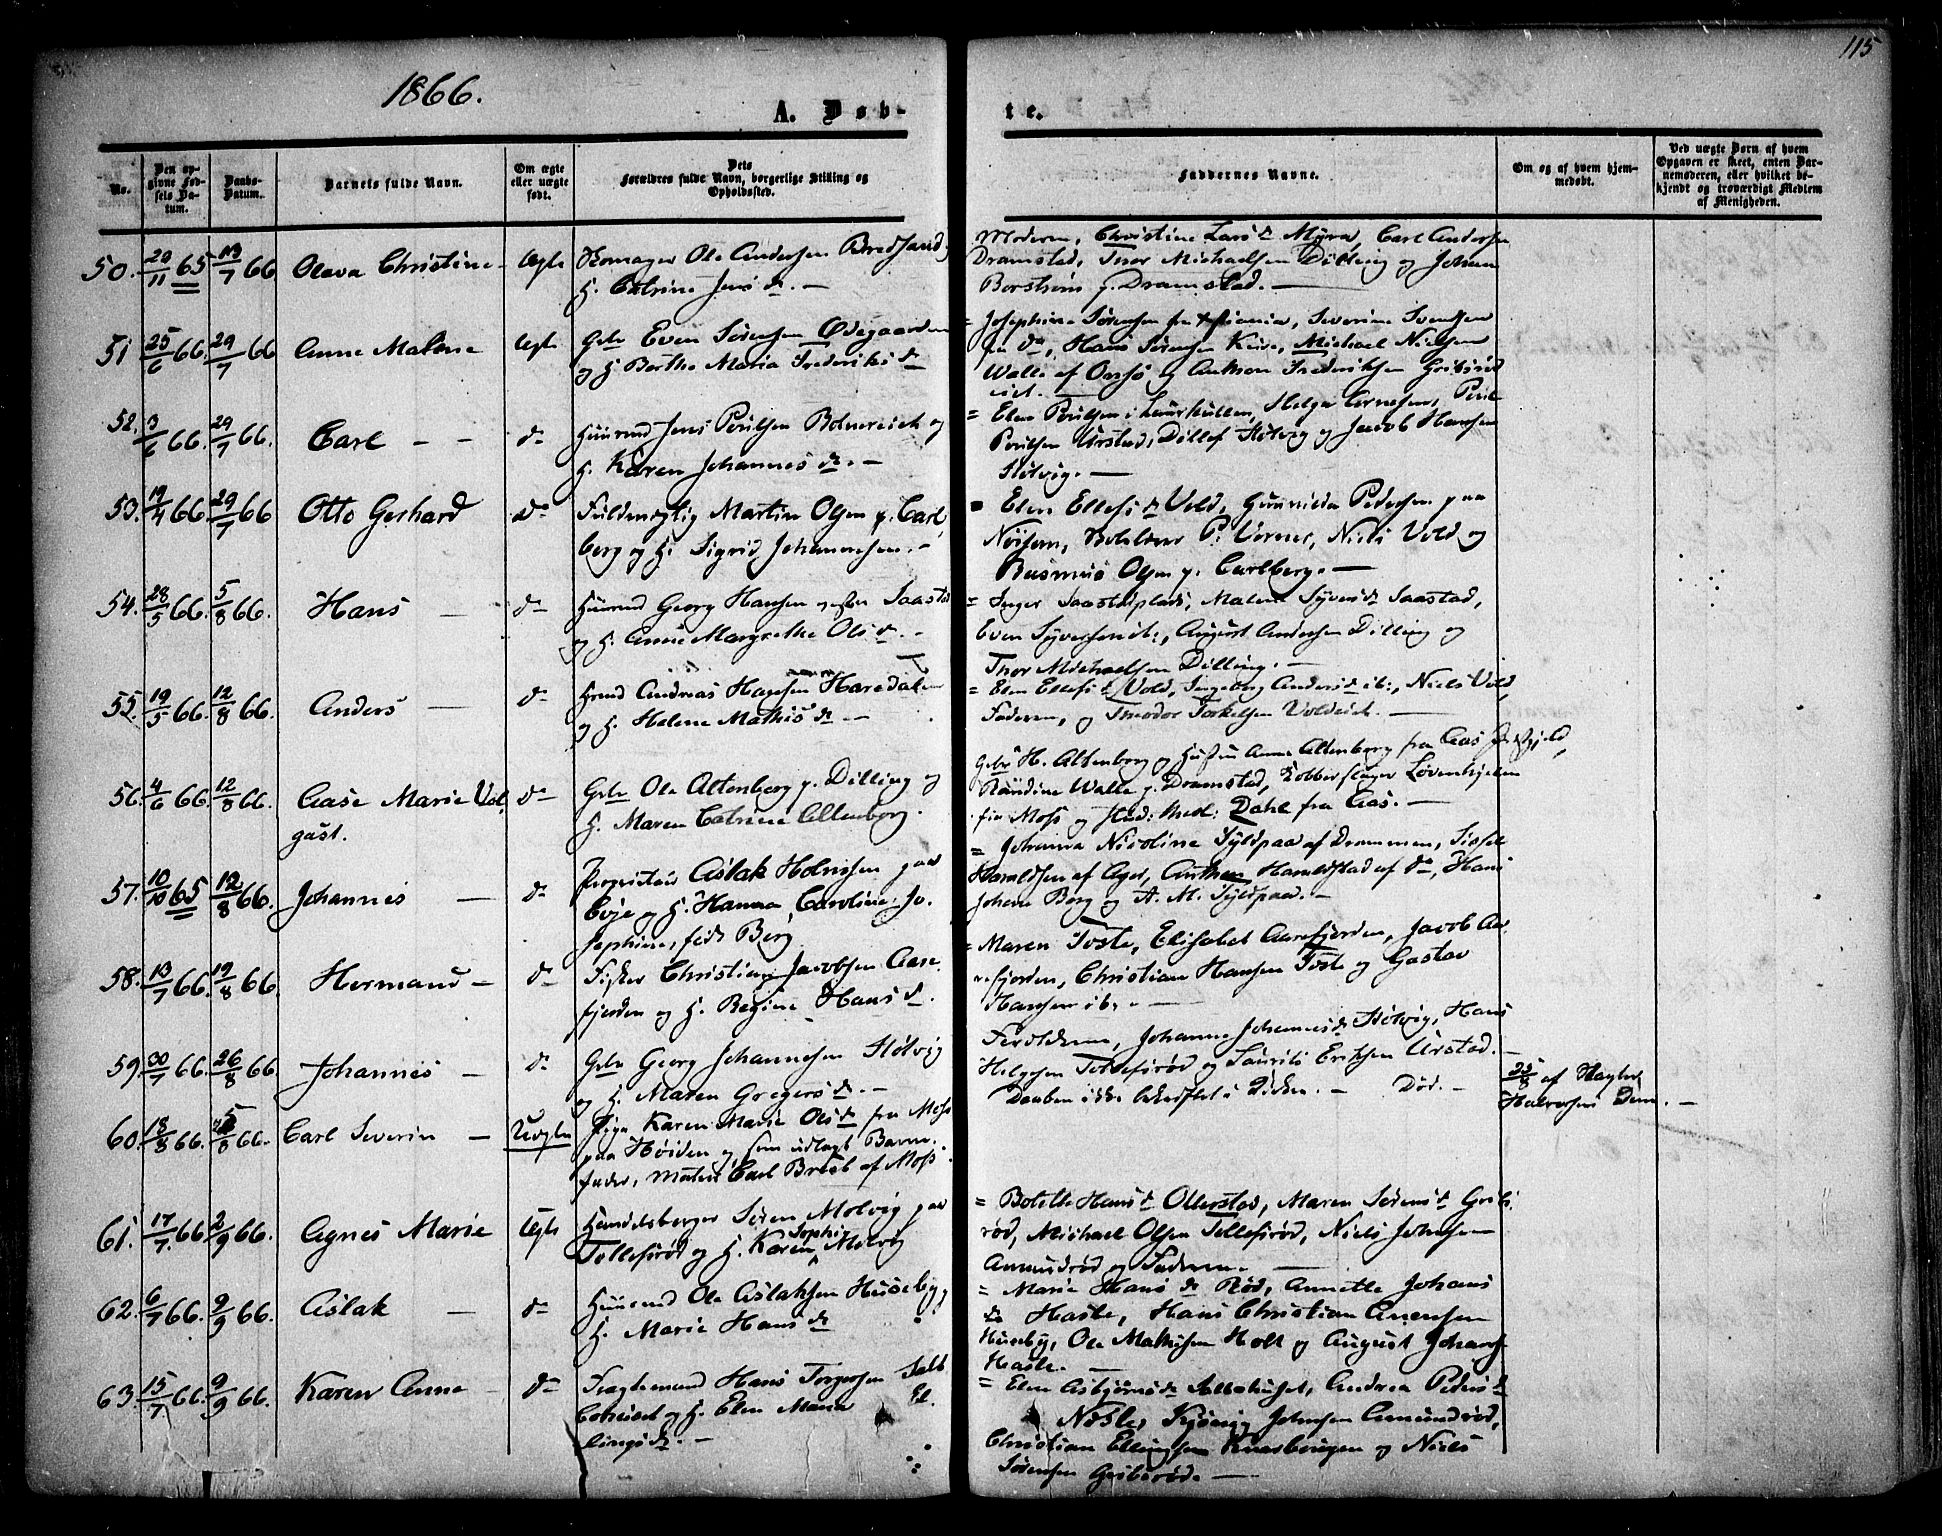 115
1866.
A. Døb-
te.
No.
Den opgivne Fødsels Datum.
Daabs-Datum.
Barnets fulde Navn.
Om ægte eller uægte født.
Dets Forældres fulde Navn, borgerlige Stilling og Opholdssted.
Faddernes Navne.
Om og af hvem hjemmedøbt.
Ved uægte Børn af hvem Opgaven er skeet, enten Barnemoderen, eller hvilket bekjendt og troværdigt Medlem af Menigheden.
50. 20/11 65 13/7 66 Olava Christine Ægte Skomager Ole Andersen Bredsand og
H. Catrine Jens d. —
Moderen, Christine Lars d Myra, Carl Andersen
Dramstad, Thor Michaelsen Dilling og Johan
Borstrøm p. Dramstad. —
51 25/6 66. 29/7 66 Anne Malene Ægte Gbr Even Sørensen Ødegaarden
og H Berthe Maria Frederiks d
= Josephine Sørensen fra Xstiania, Severine Svendsen
fra do, Hans Sørensen Kure, Michael Nielsen
Walle af Onsø og Anthon Fredriksen Gribsrød
eiet. —
52. 3/6 66. 29/7 66. Carl — do Huusmd Jens Poulsen Botnereiet og
H. Karen Johannes d. —
= Elen Poulsen i Laurkullen, Helga Arnesen, Poul
Poulsen Urstad, Ditlef Støtvig og Jacob Hansen
Støtvig. —
53. 19/4 66. 29/7 66 Otto Gerhard do Fuldmægtig Martin Olsen p. Carl
berg og H. Sigrid Johannesen. —
= Elen Ellefs d Vold, Gunnilda Pedersen paa
Nøisom, P. Vorner, Niels Vold og
Rasmus Olsen p. Carlberg. —
54. 28/5 66. 5/8 66. Hans — do Huusmd Georg Hansen Saastad
og H. Anne Margrethe Ols d. —
= Inger Saastadplads, Malene Syvers d Saastad,
Even Syversen ib:, August Andersen Dilling og
Thor Michaelsen Dilling. —
55. 19/5 66. 12/8 66. Anders — do Hmd Andreas Hansen Haredalen
og H. Helene Mathis d —
= Elen Ellefs d Vold, Ingeborg Anders d ib:, Niels Vold,
Faderen, og Theodor Torkelsen Voldeiet. —
56. 4/6 66. 12/8 66. Aase Marie Vol
gast. do Gbr Ole Altenborg p. Dilling og
H. Maren Catrine Altenborg.
Gbr H. Altenborg og Hustru Anne Altenborg fra Aas Præstegjeld,
Randine Walle p. Dramstad, Kobberslager Løvenhjelm
fra Moss og Stud: med: Dahl fra Aas. —
57. 10/10 65 12/8 66. Johannes — do Proprietair Aslak Holmsen paa
Evje og H. Hanna Caroline Jo-
sephine, født Berg
= Johanna Nicoline Syldpaa af Drammen, Sissel
Haraldsen af Ager, Anthon Haraldstad af do, Hans
Johan Berg og A. M. Syldpaa. —
58. 13/7 66. 19/8 66. Hermand — do Fisker Christian Jacobsen Aare-
fjorden og H. Regine Hans d.
= Maren Toste, Elisabet Aarefjorden, Jacob Aa-
refjorden, Christian Hansen Toste og Gustav
Hansen ib. —
59. 30/7 66. 26/8 66. Johannes — do Gbr Georg Johannesen Støtvig
og H. Maren Gregers d. —
Forældrene, Johanne Johannes d Støtvig, Hans
Helgesen Tollefsrød og Laurits Eriksen Urstad. —
60. 18/8 66. 66. Carl Severin — Uægte Pige Karen Marie Ols d fra Moss
paa Høiden og som udlagt Barne-
fader, Matros Carl Brest af Moss.
Daaben ikke bekræftet i Kirken. — Død. —
25/8 af Halvorsen —
61. 17/7. 66. 2/9 66. Agnes Marie Ægte Handelsborger Søren Molvig paa
Tollefsrød og H. Karen Sophie Molvig
= Botille Hans d Ollerstad, Maren Sørens d Gribs-
rød, Michael Olsen Tollefsrød, Niels Johnsen
Amundrød og Faderen. —
62. 6/7 66. 9/9 66. Aslak — do Huusmd Ole Aslaksen Huseby og
H. Marie Hans d
= Marie Hans d Rød, Annette Johans
d Hasle, Hans Christian Anensen
Huseby, Ole Mathisen Holt og August Johans.
Hasle. —
63. 15/7 66. 9/9 66. Karen Anne — do Fragtemand Hans Torgersen Salt-
boteiet og H. Elen Maria El-
lings d. —
= Elen Asbjørns d Saltbohuset, Andrea Peders d
Nøsle, Kjønig Johnsen Amundrød,
Christian Ellingsen og Niels
Sørensen Gribsrød. —